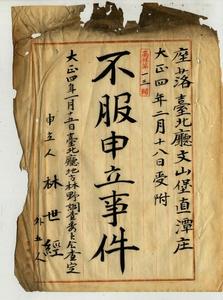 座落臺北廳文山堡直潭庄
大正四年二月十八日受附
第一三號
不服申立事件
大正四年一月十五日臺北廳地方林野調查委員會查定
申立人 林世經
外五人